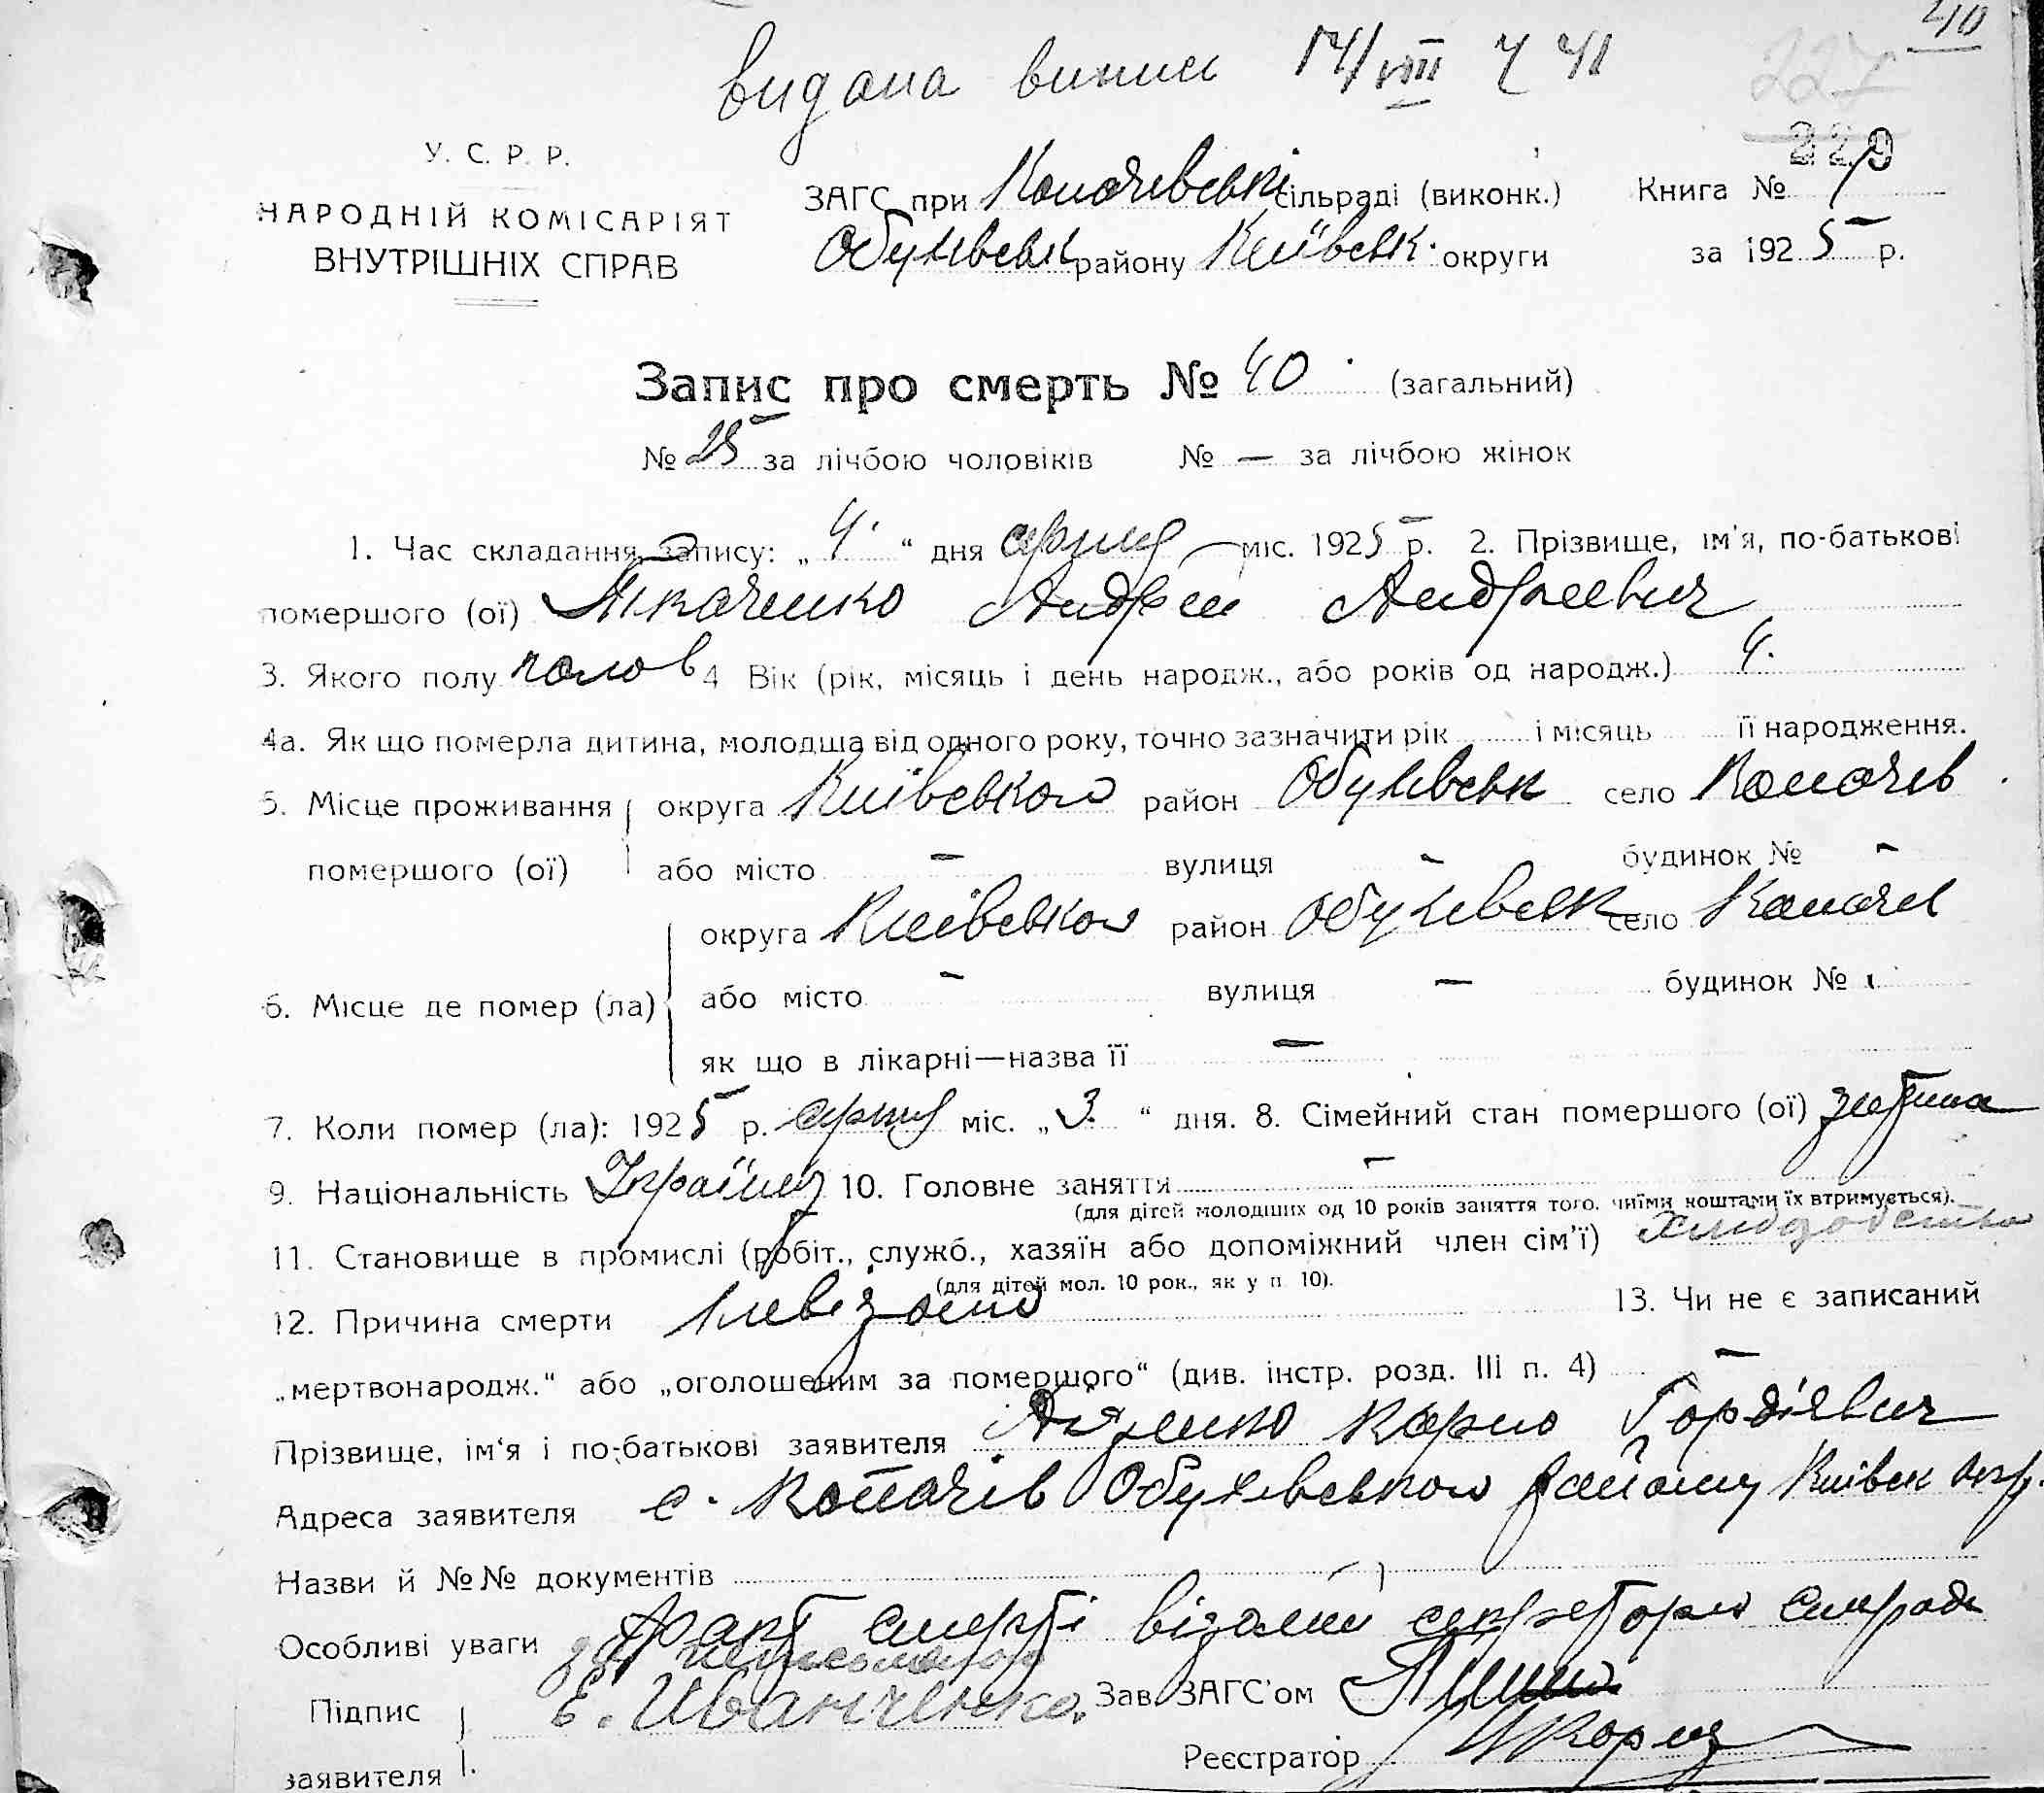 40
видана випис 14/VIII 41
227
229
У. С. Р. Р.
НАРОДНІЙ КОМІСАРІЯТ
ВНУТРІШНІХ СПРАВ
ЗАГС при Копачевські сільраді (виконк.) Книга №
Обухівськ району Київськ. округи за 1925 р.
Запис про смерть № 40 (загальний)
№ 25 за лічбою чоловіків № — за лічбою жінок
1. Час складання запису: „ 4 “ дня серпня міс. 1925 р. 2. Прізвище, ім'я, по-батькові
помершого (ої) Ткаченко Андрій Андреевич
3. Якого полу чолов 4 Вік (рік, місяць і день народж., або років од народж.) 4.
4а. Як що померла дитина, молодша від одного року, точно зазначити рік і місяць її народження.
5. Місце проживання округа Київського район Обухівськ село Копачів
помершого (ої) або місто — вулиця — будинок № —
округа Київського район Обухівськ село Копачів
6. Місце де помер (ла) або місто — вулиця — будинок №
як що в лікарні—назва її —
7. Коли помер (ла): 1925 р. серпня міс. „ 3 “ дня. 8. Сімейний стан помершого (ої)
9. Національність Україн. 10. Головне заняття —
(для дітей молодших од 10 років заняття того, чиїми коштами їх втримується).
11. Становище в промислі (робіт., служб., хазяїн або допоміжний член сім'ї)
(для дітей мол. 10 рок., як у п. 10).
12. Причина смерти невізано 13. Чи не є записаний
„мертвонародж.“ або „оголошеним за помершого“ (див. інстр. розд. III п. 4) —
Прізвище, ім'я і по-батькові заявителя Карпо Гордієвич
Адреса заявителя с. Копачів Обухівського району Київськ окр.
Назви й №№ документів
Особливі уваги Факт смерті візаний секретором сілради
Підпис
заявителя
Е. Иванченко. Зав. ЗАГС'ом
Реєстратор